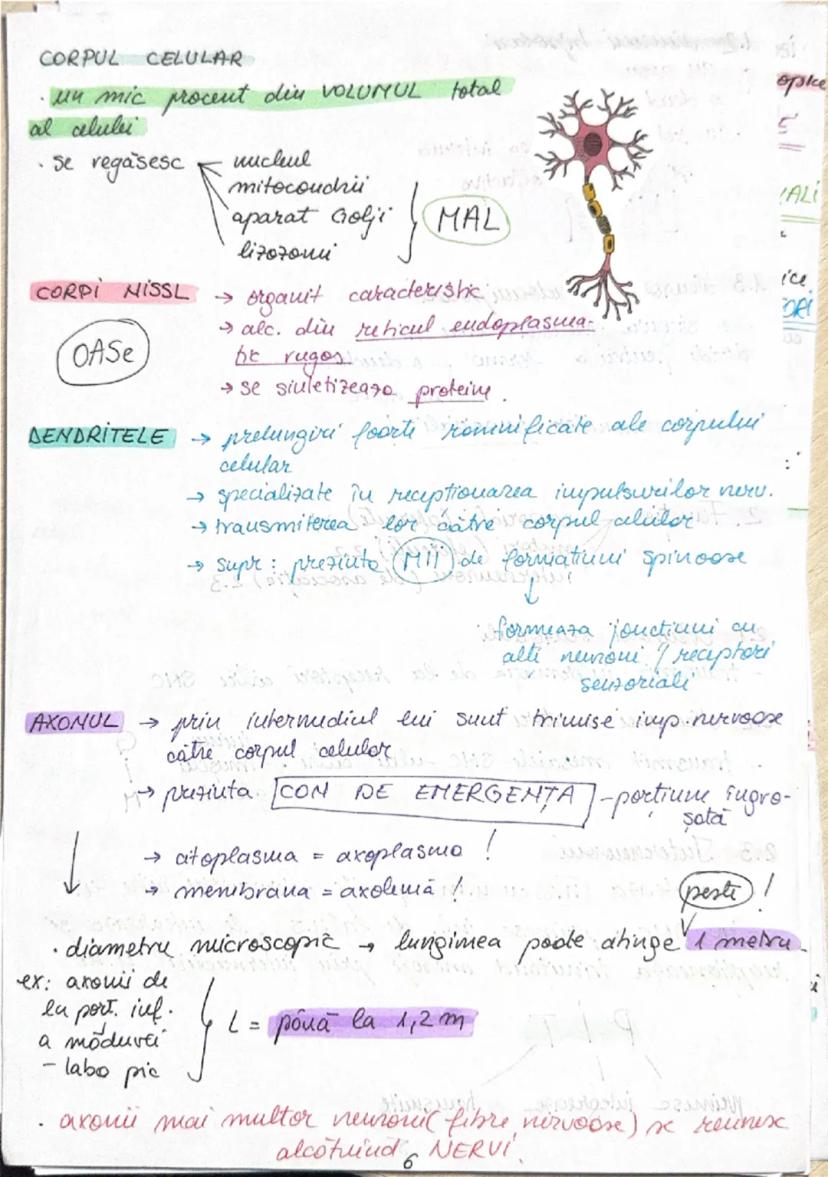 CORPUL CELULAR
· un mic procent din VOLUMUL total
al celulei
· se regăsesc nucleul
mitocondrii
aparat Golgi
lizozomi
MAL
CORPI NISSL → organit caracteristic
→ alc. din reticul endoplasma-
tic rugos
OASe
→ se sintetizează proteine.
DENDRITELE → prelungiri foarte ramificate ale corpului
celular
→ specializate în recepționarea impulsurilor nerv.
→ transmiterea lor către corpul celular
→ supr: prezintă MII de formațiuni spinoase
↓
formează joncțiuni cu
alți neuroni / receptori
senzoriali
AXONUL → prin intermediul lui sunt trimise imp. nervoase
către corpul celular
→ prezintă CON DE EMERGENȚA - porțiune îngro-
șată
→ citoplasma = axoplasma !
→ membrana = axolemă !
peste !
· diametru microscopic → lungimea poate atinge 1 metru
ex: axonii de
la port. inf.
a măduvei
- laba pic
L = până la 1,2 m
· axonii mai multor neuroni (fibre nervoase) se reunesc
alcătuind NERVI.
6